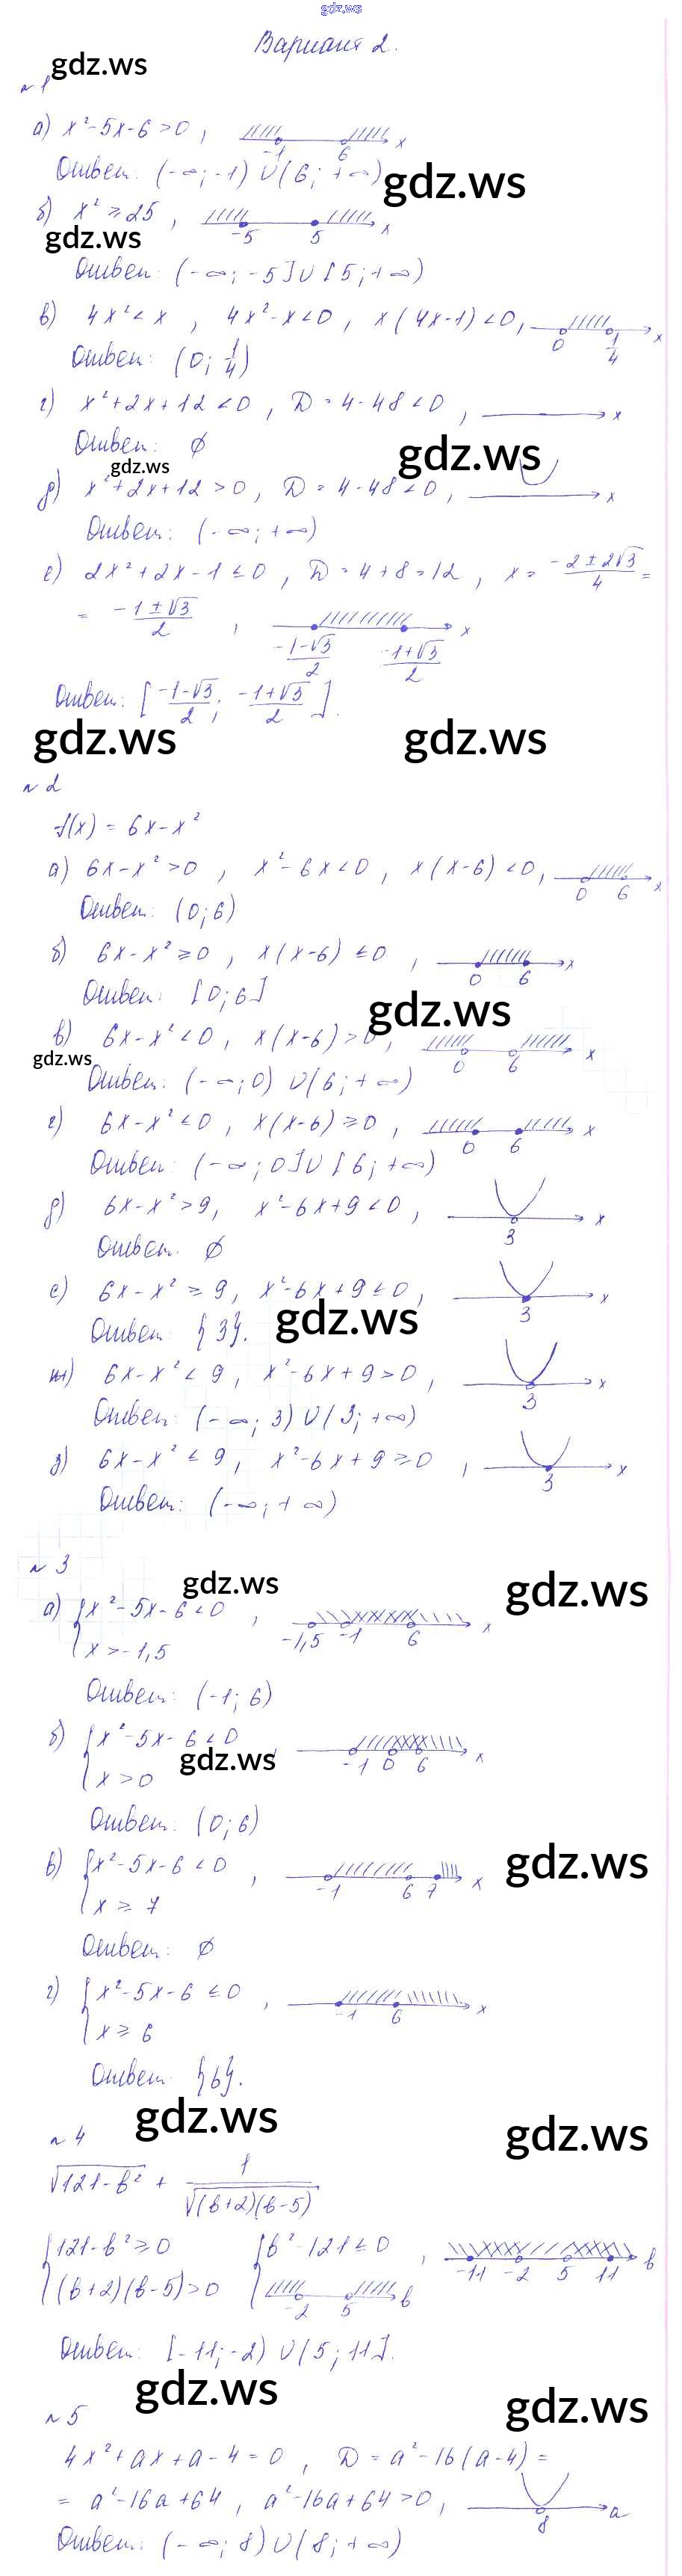 gdz.ws
Вариант 2.
gdz.ws
№ 1
а) x² - 5x - 6 > 0 , -1 6 x
Ответ: (-∞; -1) ∪ (6; +∞)
gdz.ws
б) x² ≥ 25 , -5 5 x
gdz.ws
Ответ: (-∞; -5] ∪ [5; +∞)
в) 4x² < x , 4x² - x < 0 , x(4x-1) < 0 , 0 1/4 x
Ответ: (0; 1/4)
г) x² + 2x + 12 < 0 , D = 4 - 48 < 0 , x
Ответ: ∅
gdz.ws
gdz.ws
д) x² + 2x + 12 > 0 , D = 4 - 48 < 0 , x
Ответ: (-∞; +∞)
е) 2x² + 2x - 1 ≤ 0 , D = 4 + 8 = 12 , x = (-2 ± 2√3)/4 =
= (-1 ± √3)/2 , (-1-√3)/2 (-1+√3)/2 x
Ответ: [(-1-√3)/2; (-1+√3)/2].
gdz.ws gdz.ws
№ 2
f(x) = 6x - x²
а) 6x - x² > 0 , x² - 6x < 0 , x(x-6) < 0 , 0 6 x
Ответ: (0; 6)
б) 6x - x² ≥ 0 , x(x-6) ≤ 0 , 0 6 x
Ответ: [0; 6]
gdz.ws
в) 6x - x² < 0 , x(x-6) > 0 , 0 6 x
gdz.ws
Ответ: (-∞; 0) ∪ (6; +∞)
г) 6x - x² ≤ 0 , x(x-6) ≥ 0 , 0 6 x
Ответ: (-∞; 0] ∪ [6; +∞)
д) 6x - x² > 9 , x² - 6x + 9 < 0 , 3 x
Ответ: ∅
е) 6x - x² ≥ 9 , x² - 6x + 9 ≤ 0 , 3 x
gdz.ws
Ответ: {3}.
ж) 6x - x² < 9 , x² - 6x + 9 > 0 , 3 x
Ответ: (-∞; 3) ∪ (3; +∞)
з) 6x - x² ≤ 9 , x² - 6x + 9 ≥ 0 , 3 x
Ответ: (-∞; +∞)
№ 3
gdz.ws gdz.ws
а) { x² - 5x - 6 < 0 , -1,5 -1 6 x
x > -1,5
Ответ: (-1; 6)
б) { x² - 5x - 6 < 0 -1 0 6 x
x > 0
gdz.ws
Ответ: (0; 6)
в) { x² - 5x - 6 < 0 , -1 6 7 x
gdz.ws
x ≥ 7
Ответ: ∅
г) { x² - 5x - 6 ≤ 0 , -1 6 x
x ≥ 6
Ответ: {6}.
gdz.ws gdz.ws
№ 4
√(121 - b²) + 1/√((b+2)(b-5))
{ 121 - b² ≥ 0 { b² - 121 ≤ 0 , -11 -2 5 11 b
(b+2)(b-5) > 0 -2 5 b
Ответ: [-11; -2) ∪ (5; 11].
gdz.ws gdz.ws
№ 5
4x² + ax + a - 4 = 0 , D = a² - 16(a-4) =
= a² - 16a + 64 , a² - 16a + 64 > 0 , 8 a
Ответ: (-∞; 8) ∪ (8; +∞)